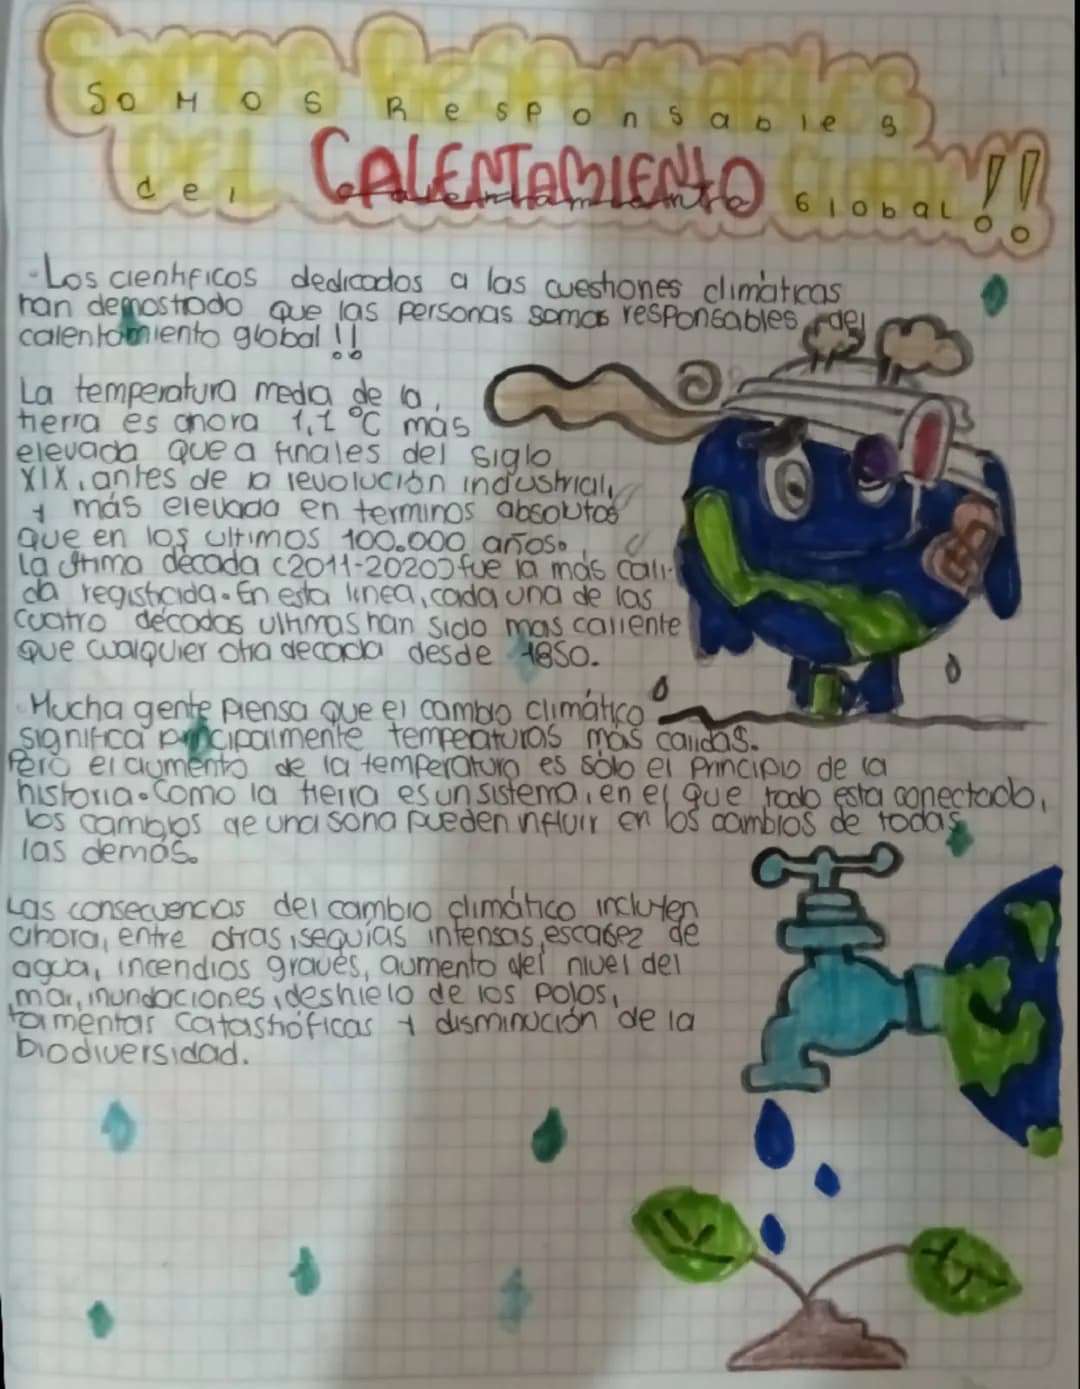 Somos Responsables
del CALENTAMIENTO Global!!
-Los cientificos dedicados a las cuestiones climáticas
han demostrado que las personas somos responsables del
calentamiento global!!
La temperatura meda de la
tierra es ahora 1,1 °C mas
elevada que a finales del siglo
XIX, antes de la revolución industrial,
y más elevada en terminos absolutos
que en los ultimos 100.000 años.
la última década (2011-2020) fue la más cali-
da registrada. En esta linea, cada una de las
cuatro décadas ultimas han sido mas caliente
que cualquier otra decada desde 1850.
Mucha gente piensa que el cambio climático
significa principalmente temperaturas más calidas.
Pero el aumento de la temperatura es sólo el principio de la
historia. Como la tierra es un sistema, en el que todo esta conectado,
los cambios de una sona pueden influir en los cambios de todas
las demás.
Las consecuencias del cambio climático incluyen
ahora, entre otras, sequías intensas, escasez de
agua, incendios graves, aumento del nivel del
mar, inundaciones, deshielo de los polos,
tormentas catastróficas y disminución de la
biodiversidad.